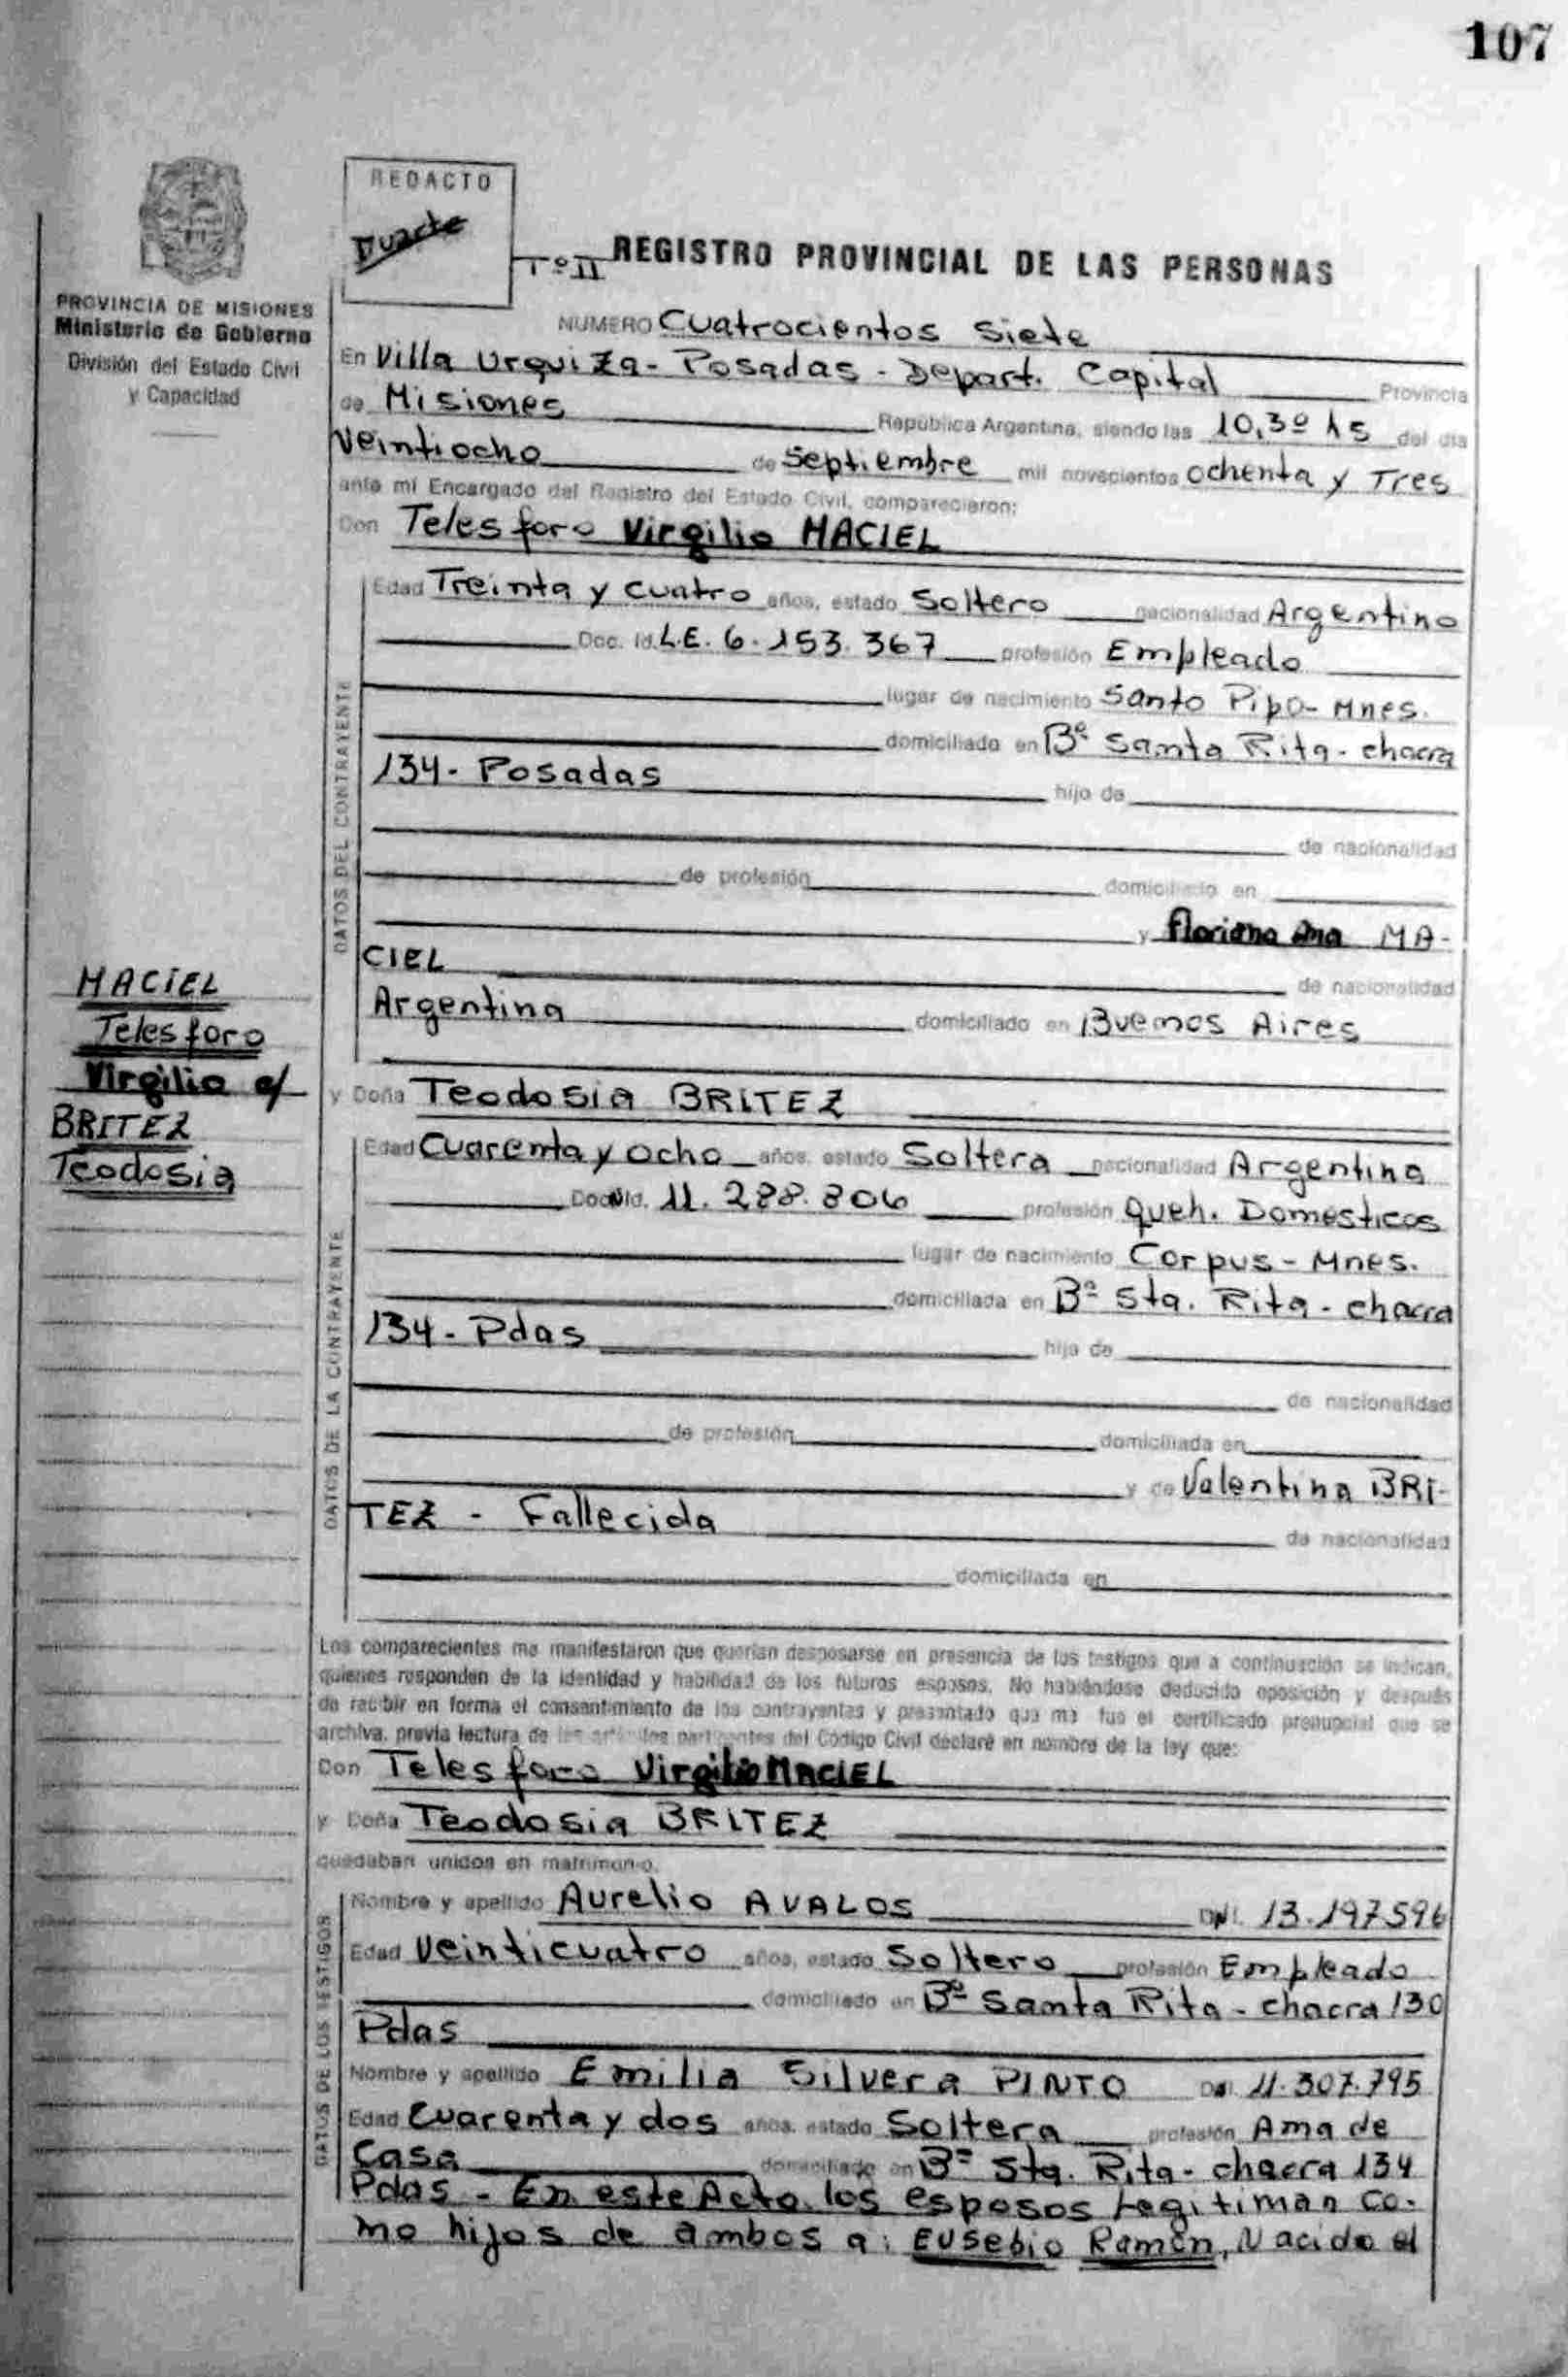 107
REDACTO
Duarte
Tº II
REGISTRO PROVINCIAL DE LAS PERSONAS
PROVINCIA DE MISIONES
Ministerio de Gobierno
División del Estado Civil
y Capacidad
NUMERO Cuatrocientos Siete
En Villa Urquiza - Posadas - Depart. Capital Provincia
de Misiones República Argentina, siendo las 10,3º hs del día
Veintiocho de Septiembre mil novecientos ochenta y Tres
ante mi Encargado del Registro del Estado Civil, comparecieron:
Don Telesforo Virgilio MACIEL
DATOS DEL CONTRAYENTE
Edad Treinta y cuatro años, estado Soltero nacionalidad Argentino
Doc. Id. L.E. 6.153.367 profesión Empleado
lugar de nacimiento Santo Pipo - Mnes.
domiciliado en Bº Santa Rita - chacra
134 - Posadas hijo de
de nacionalidad
de profesión domiciliado en
y Floriana Ana MA-
CIEL de nacionalidad
Argentina domiciliado en Buenos Aires
MACIEL
Telesforo
Virgilio c/
BRITEZ
Teodosia
y Doña Teodosia BRITEZ
DATOS DE LA CONTRAYENTE
Edad Cuarenta y ocho años, estado Soltera nacionalidad Argentina
Doc. Id. 11.288.806 profesión Queh. Domesticos
lugar de nacimiento Corpus - Mnes.
domiciliada en Bº Sta. Rita - chacra
134 - Pdas hija de
de nacionalidad
de profesión domiciliada en
y de Valentina BRI-
TEZ - Fallecida de nacionalidad
domiciliada en
Los comparecientes me manifestaron que querían desposarse en presencia de los testigos que a continuación se indican,
quienes responden de la identidad y habilidad de los futuros esposos. No habiéndose deducido oposición y después
de recibir en forma el consentimiento de los contrayentes y presentado que me fue el certificado prenupcial que se
archiva, previa lectura de los artículos pertinentes del Código Civil declaré en nombre de la ley que:
Don Telesforo Virgilio MACIEL
y Doña Teodosia BRITEZ
quedaban unidos en matrimonio.
DATOS DE LOS TESTIGOS
Nombre y apellido Aurelio AVALOS DNI. 13.197596
Edad Veinticuatro años, estado Soltero profesión Empleado
domiciliado en Bº Santa Rita - chacra 130
Pdas
Nombre y apellido Emilia Silvera PINTO 11.307.795
Edad Cuarenta y dos años, estado Soltera profesión Ama de
Casa domiciliado en Bº Sta. Rita - chacra 134
Pdas - En este Acto los esposos Legitiman co-
mo hijos de ambos a: Eusebio Ramón, Nacido el